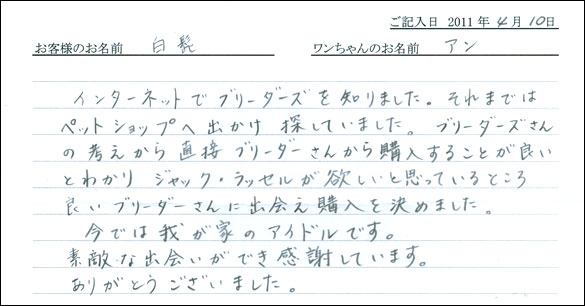 ご記入日 2011年4月10日
お客様のお名前 白髭 ワンちゃんのお名前 アン
インターネットでブリーダーズを知りました。それまでは
ペットショップへ出かけ探していました。ブリーダーズさん
の考えから直接ブリーダーさんから購入することが良い
とわかりジャック・ラッセルが欲しいと思っているところ
良いブリーダーさんに出会え購入を決めました。
今では我が家のアイドルです。
素敵な出会いができ感謝しています。
ありがとうございました。